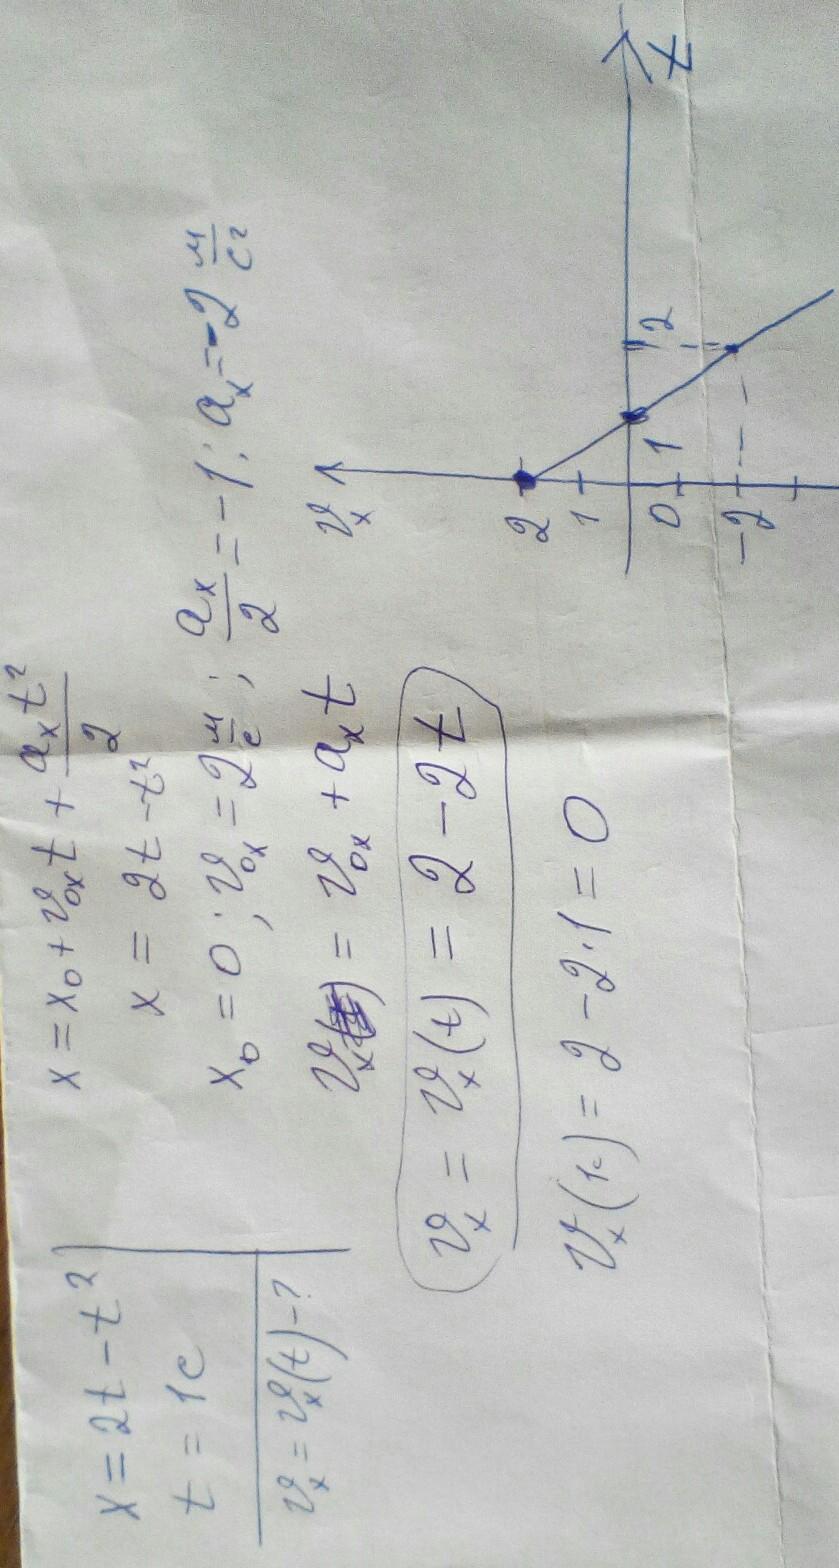 x = 2t - t²
t = 1c
𝑣ₓ = 𝑣ₓ(t) - ?
x = x₀ + 𝑣₀ₓt + aₓt²/2
x = 2t - t²
x₀ = 0; 𝑣₀ₓ = 2 м/с; aₓ/2 = -1; aₓ = -2 м/с²
𝑣ₓ = 𝑣₀ₓ + aₓt
𝑣ₓ = 𝑣ₓ(t) = 2 - 2t
𝑣ₓ(1с) = 2 - 2·1 = 0
𝑣ₓ
2
1
0 1 2 t
-2